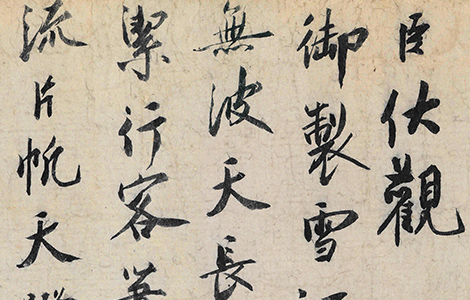 臣伏觀
御製雪
無波天長
潔行客
流片帆天